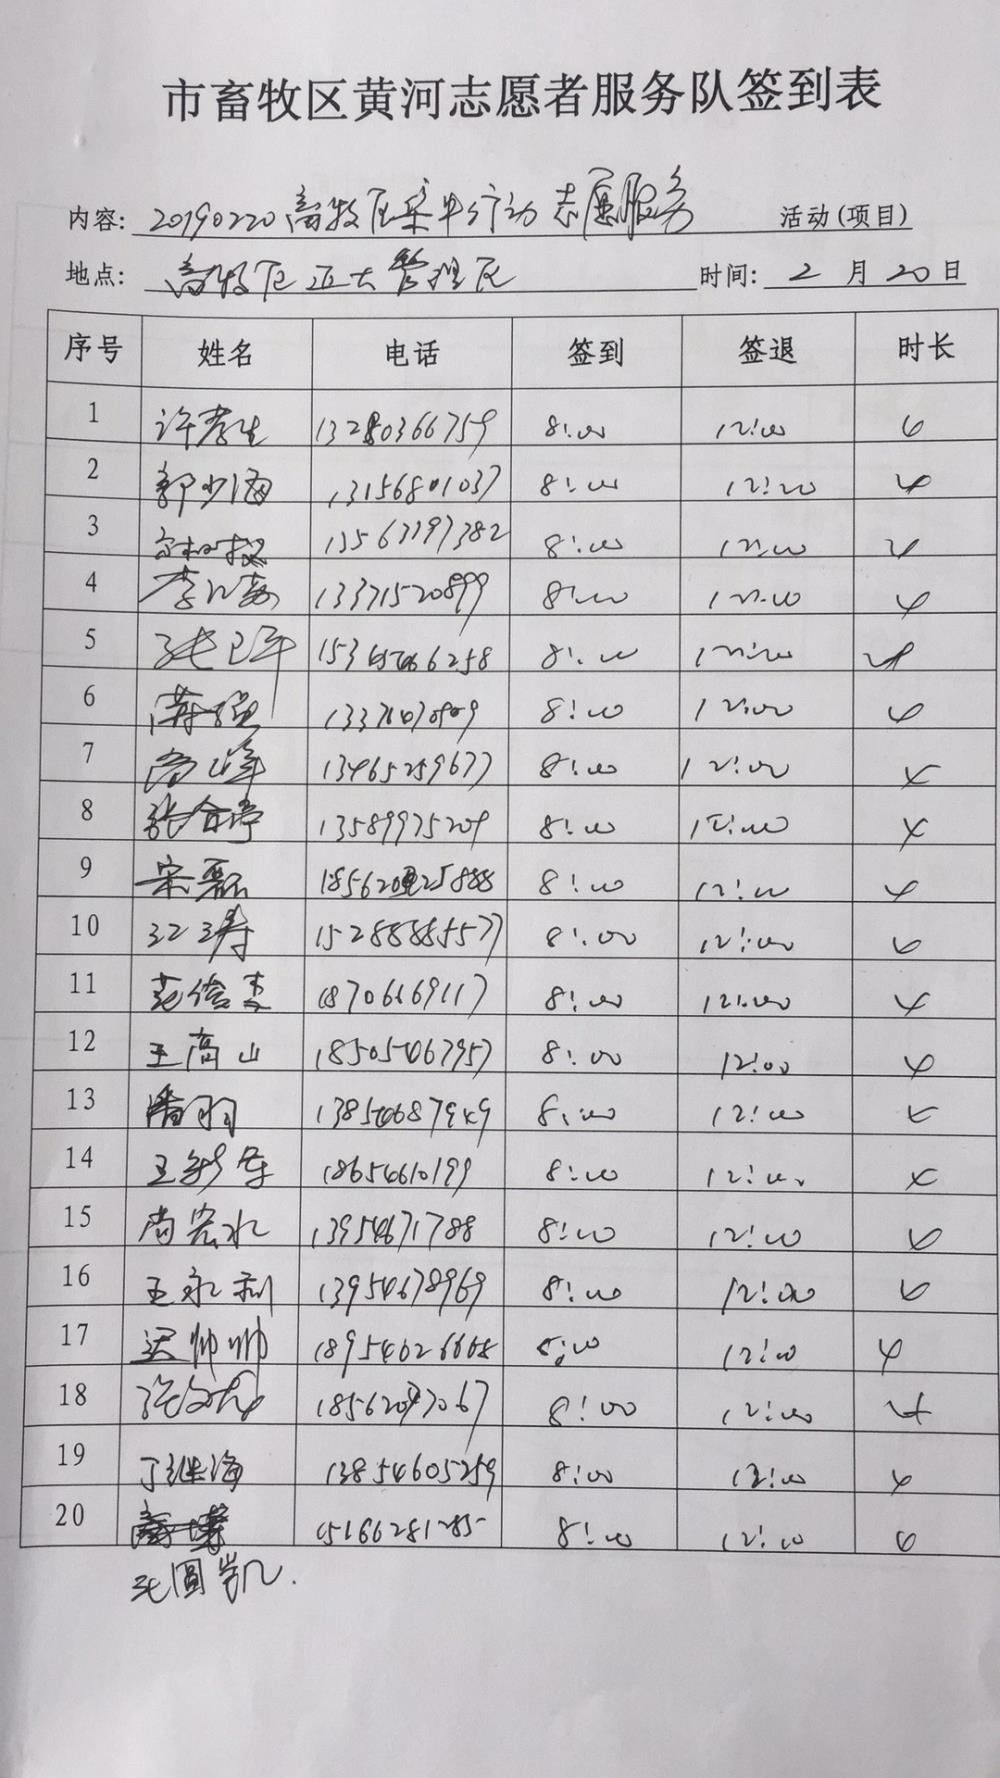 市畜牧区黄河志愿者服务队签到表
内容: 20190220畜牧区集中行动志愿服务 活动(项目)
地点: 畜牧区正大管理区 时间: 2 月 20 日
序号 姓名 电话 签到 签退 时长
1 许孝生 13280366759 8:00 12:00 4
2 郭少海 13156801037 8:00 12:00 4
3 8:00 12:00 4
4 13371520899 8:00 12:00 4
5 张卫军 8:00 12:00 4
6 8:00 12:00 4
7 13465259677 8:00 12:00 4
8 13589975209 8:00 12:00 4
9 宋磊 8:00 12:00 4
10 15288885577 8:00 12:00 4
11 18706669117 8:00 12:00 4
12 王高山 18505467957 8:00 12:00 4
13 潘羽 8:00 12:00 4
14 18654610199 8:00 12:00 4
15 尚宏水 13954671788 8:00 12:00 4
16 王永利 13954678969 8:00 12:00 4
17 迟帅帅 8:00 12:00 4
18 张文龙 8:00 12:00 4
19 丁继海 13854605259 8:00 12:00 4
20 8:00 12:00 4
张圆凯.